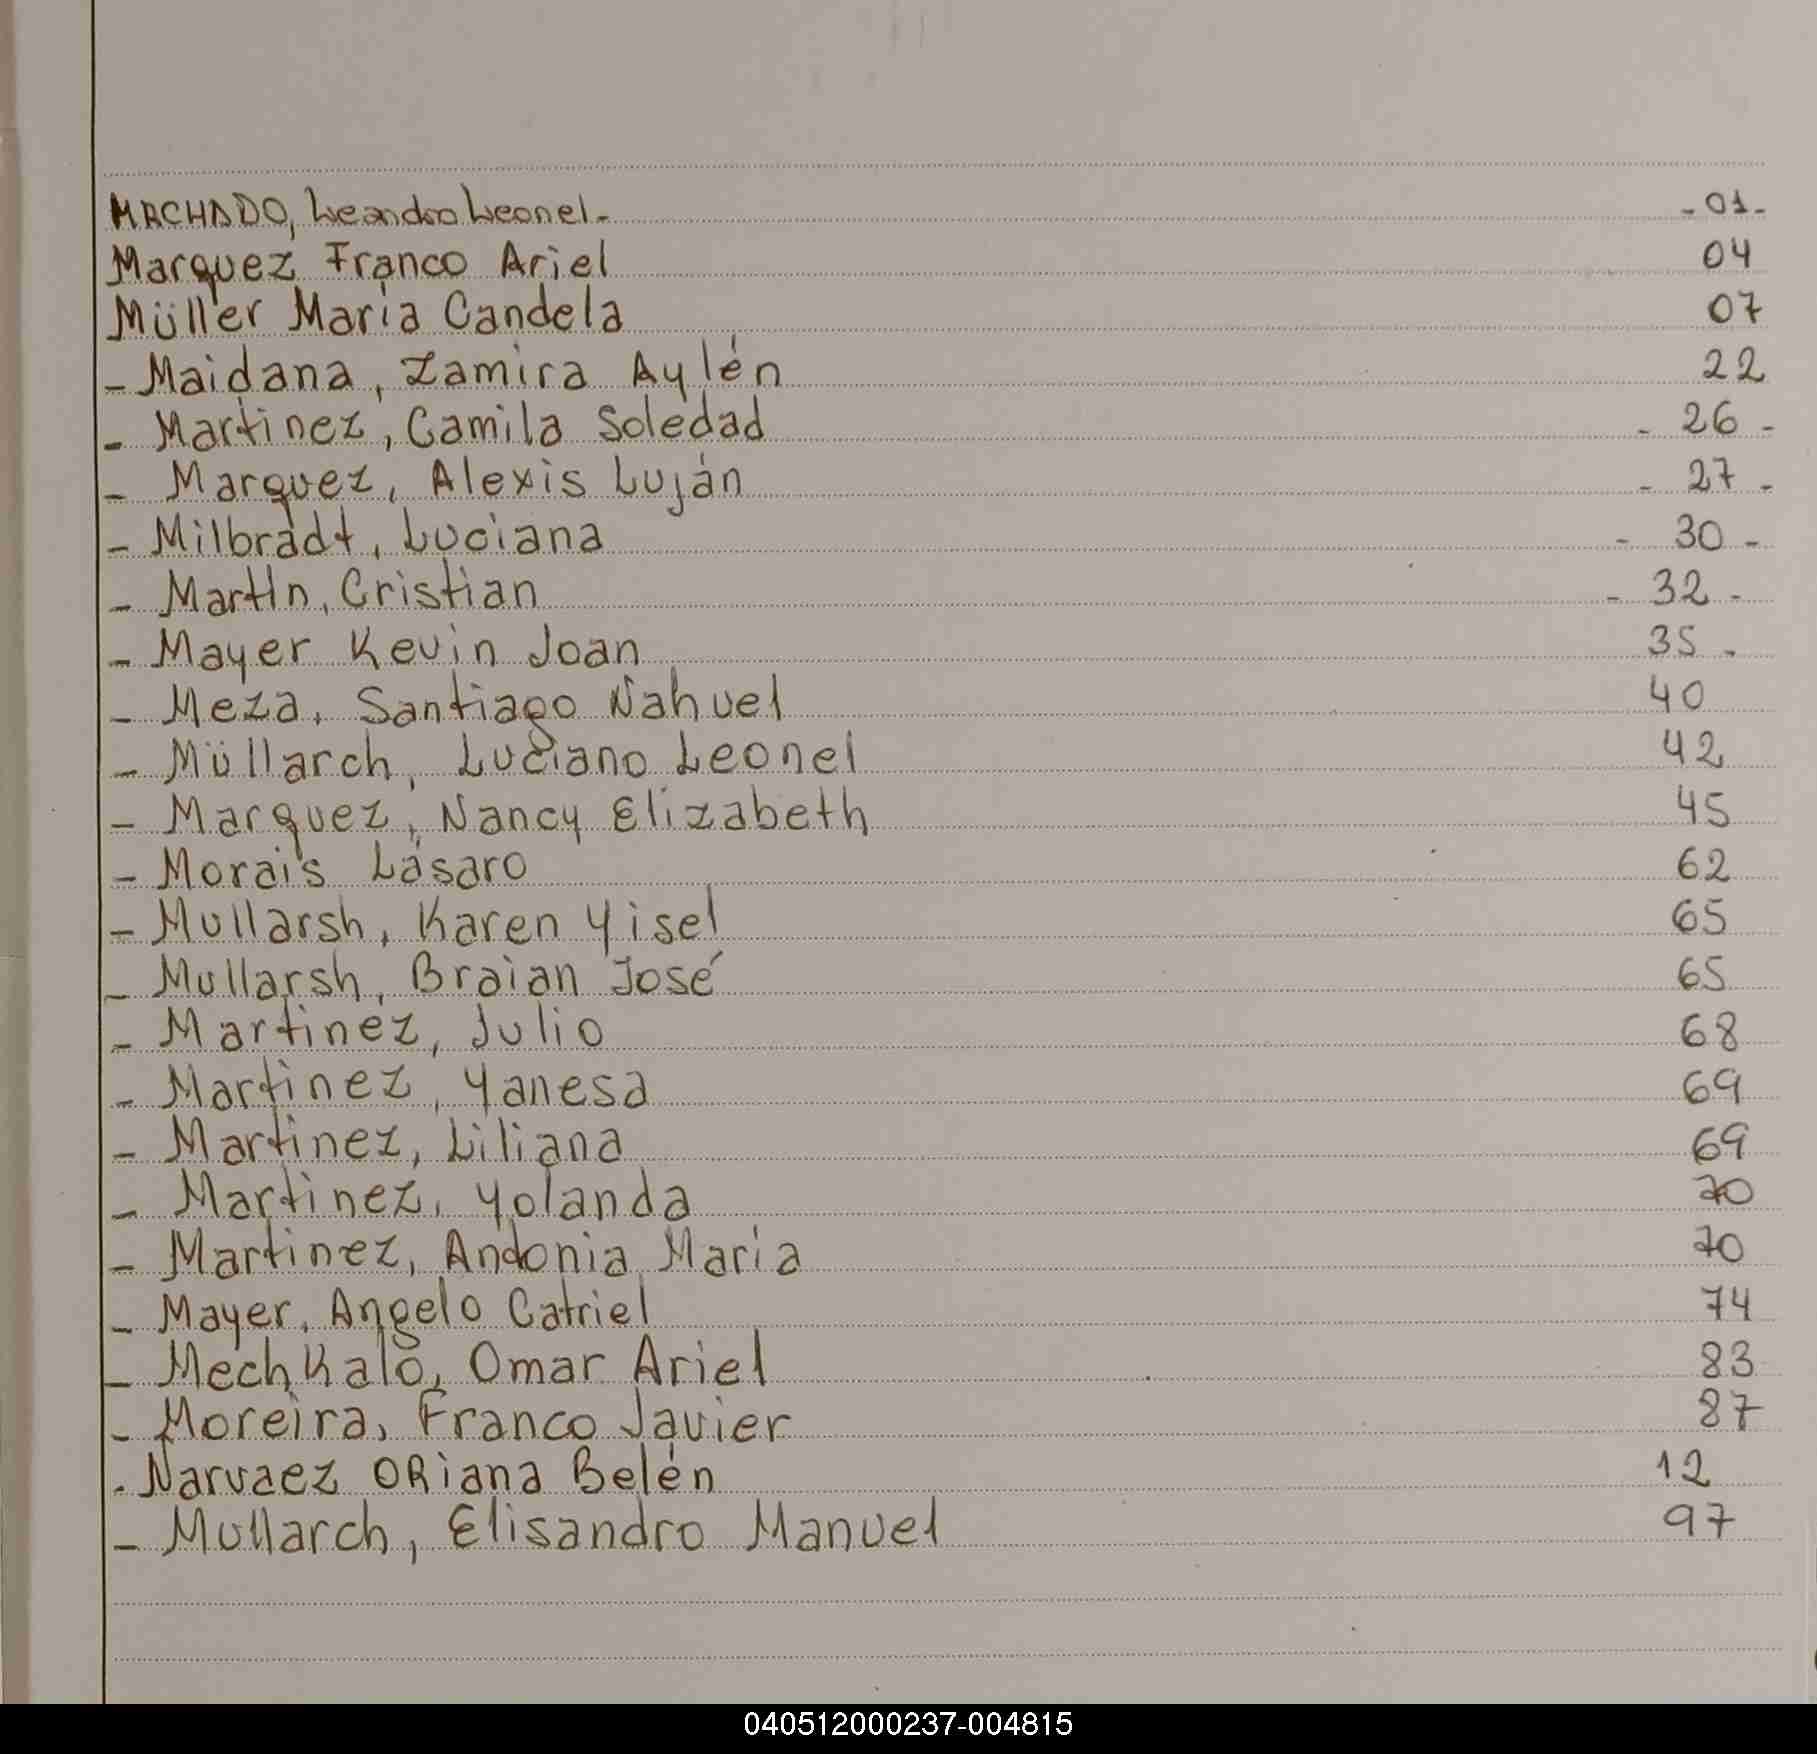 MACHADO, Leandro Leonel. - 01 -
Marquez Franco Ariel 04
Müller María Candela 07
- Maidana, Zamira Aylén 22
- Martinez, Camila Soledad - 26 -
- Marquez, Alexis Luján - 27 -
- Milbradt, Luciana - 30 -
- Martín, Cristian - 32 -
- Mayer Kevin Joan 35 -
- Meza, Santiago Nahuel 40
- Müllarch, Luciano Leonel 42
- Marquez, Nancy Elizabeth 45
- Morais Lásaro 62
- Mullarsh, Karen Yisel 65
- Mullarsh, Braian José 65
- Martinez, Julio 68
- Martinez, Yanesa 69
- Martinez, Liliana 69
- Martinez, Yolanda 70
- Martinez, Andonia María 70
- Mayer, Angelo Catriel 74
- Mechkaló, Omar Ariel 83
- Moreira, Franco Javier 87
- Narvaez ORiana Belén 12
- Mullarch, Elisandro Manuel 97
040512000237-004815